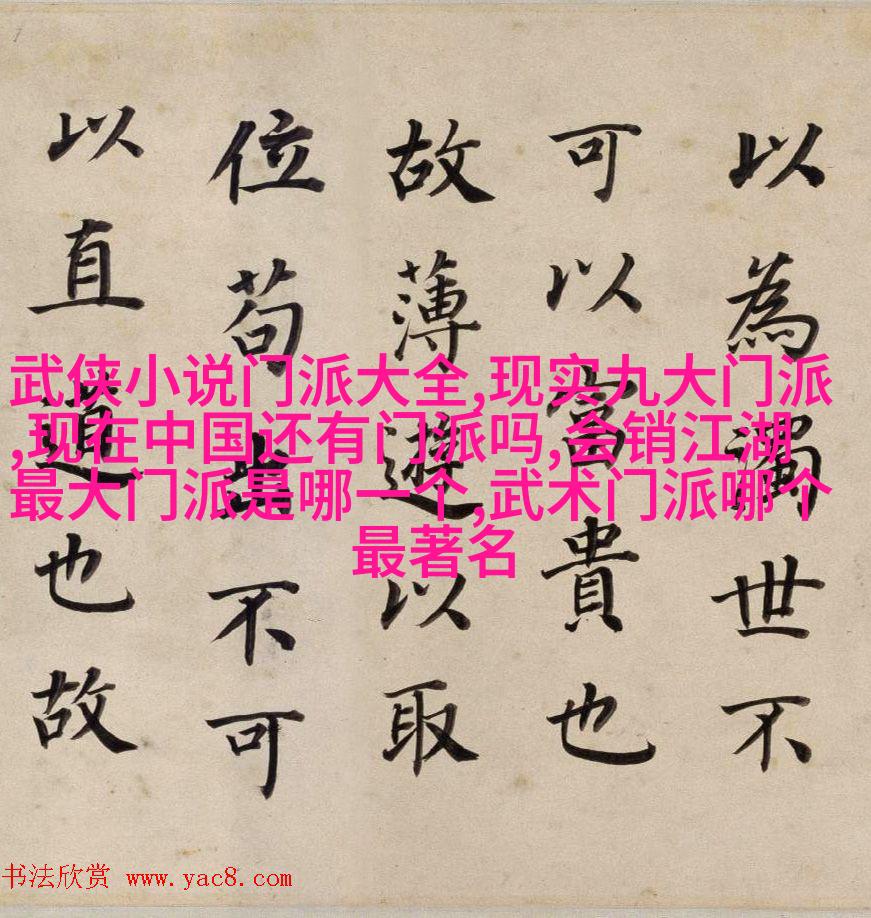 以為濁世不
可以富貴也
故薄遊以取
位苟出不可
以直道也故
武侠小说门派大全,现实九大门派
,现在中国还有门派吗,会销江湖
最大门派是哪一个,武术门派哪个
最著名
书法欣赏 www.yac8.com